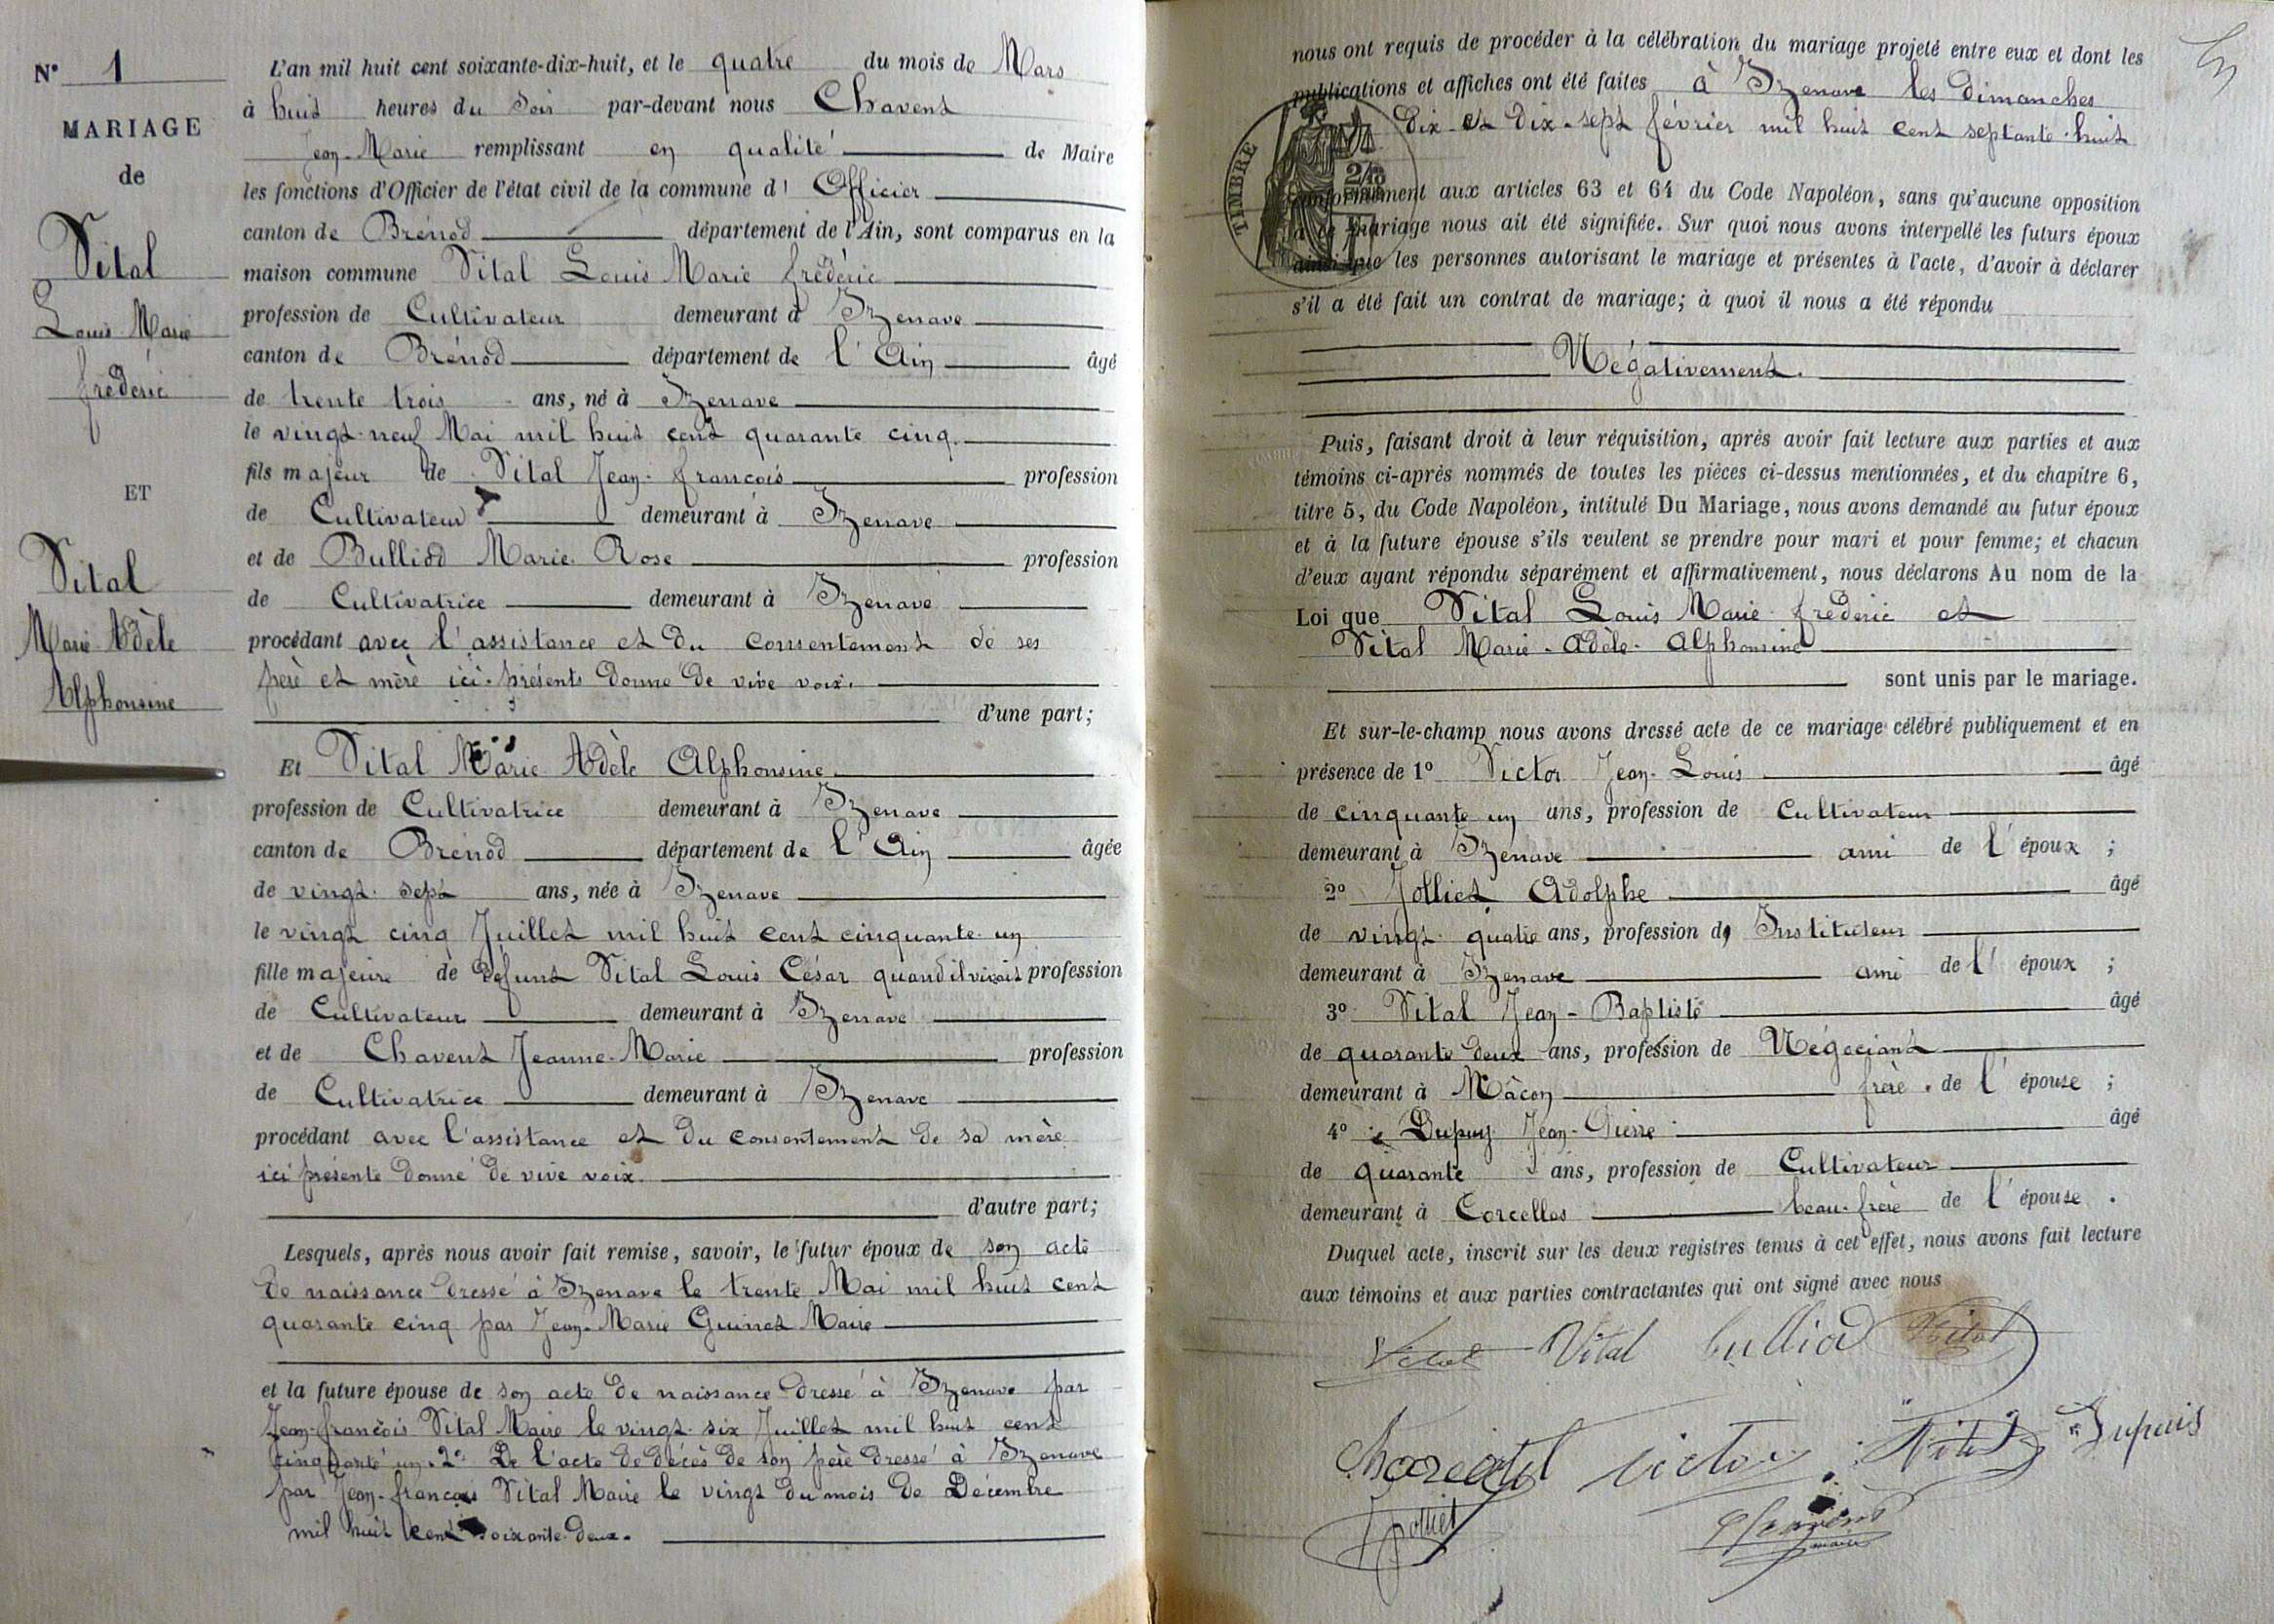 N° 1
MARIAGE
de
Vital
Louis Marie
frédéric
ET
Vital
Marie Adèle
Alphonsine
L'an mil huit cent soixante-dix-huit, et le quatre du mois de Mars
à huit heures du Soir par-devant nous Chavent
Jean-Marie remplissant en qualité de Maire
les fonctions d'Officier de l'état civil de la commune d' Officier
canton de Brénod département de l'Ain, sont comparus en la
maison commune Vital Louis Marie frédéric
profession de Cultivateur demeurant à Izenave
canton de Brénod département de l'Ain âgé
de trente trois ans, né à Izenave
le vingt-neuf Mai mil huit cent quarante cinq.
fils majeur de Vital Jean-françois profession
de Cultivateur demeurant à Izenave
et de Bulliod Marie-Rose profession
de Cultivatrice demeurant à Izenave
procédant avec l'assistance et du consentement de ses
père et mère ici-présents donné de vive voix.
d'une part;
Et Vital Marie Adèle Alphonsine
profession de Cultivatrice demeurant à Izenave
canton de Brénod département de l'Ain âgée
de vingt-sept ans, née à Izenave
le vingt cinq Juillet mil huit cent cinquante-un
fille majeure de défunt Vital Louis César quand il vivait profession
de Cultivateur demeurant à Izenave
et de Chavent Jeanne-Marie profession
de Cultivatrice demeurant à Izenave
procédant avec l'assistance et du consentement de sa mère
ici présente donné de vive voix.
d'autre part;
Lesquels, après nous avoir fait remise, savoir, le futur époux de son acte
de naissance dressé à Izenave le trente Mai mil huit cent
quarante cinq par Jean-Marie Guinet Maire
et la future épouse de son acte de naissance dressé à Izenave par
Jean-françois Vital Maire le vingt-six Juillet mil huit cent
cinquante un. 2° De l'acte de décès de son père dressé à Izenave
par Jean-françois Vital Maire le vingt du mois de Décembre
mil huit cent soixante-deux.
nous ont requis de procéder à la célébration du mariage projeté entre eux et dont les
publications et affiches ont été faites à Izenave les dimanches
dix et dix-sept février mil huit cent septante-huit
TIMBRE
conformément aux articles 63 et 64 du Code Napoléon, sans qu'aucune opposition
à ce mariage nous ait été signifiée. Sur quoi nous avons interpellé les futurs époux
ainsi que les personnes autorisant le mariage et présentes à l'acte, d'avoir à déclarer
s'il a été fait un contrat de mariage; à quoi il nous a été répondu
Négativement.
Puis, faisant droit à leur réquisition, après avoir fait lecture aux parties et aux
témoins ci-après nommés de toutes les pièces ci-dessus mentionnées, et du chapitre 6,
titre 5, du Code Napoléon, intitulé Du Mariage, nous avons demandé au futur époux
et à la future épouse s'ils veulent se prendre pour mari et pour femme; et chacun
d'eux ayant répondu séparément et affirmativement, nous déclarons Au nom de la
Loi que Vital Louis Marie frédéric et
Vital Marie-Adèle-Alphonsine
sont unis par le mariage.
Et sur-le-champ nous avons dressé acte de ce mariage célébré publiquement et en
présence de 1° Victor Jean-Louis âgé
de cinquante un ans, profession de Cultivateur
demeurant à Izenave ami de l'époux ;
2° Jolliet Adolphe âgé
de vingt-quatre ans, profession d' Instituteur
demeurant à Izenave ami de l'époux ;
3° Vital Jean-Baptiste âgé
de quarante deux ans, profession de Négociant
demeurant à Mâcon frère de l'épouse ;
4° Dupuy Jean-Pierre âgé
de quarante ans, profession de Cultivateur
demeurant à Corcelles beau-frère de l'épouse .
Duquel acte, inscrit sur les deux registres tenus à cet effet, nous avons fait lecture
aux témoins et aux parties contractantes qui ont signé avec nous
Vital Vital bulliod Vital
victor Vital Dupuis
Jolliet Chavent
maire